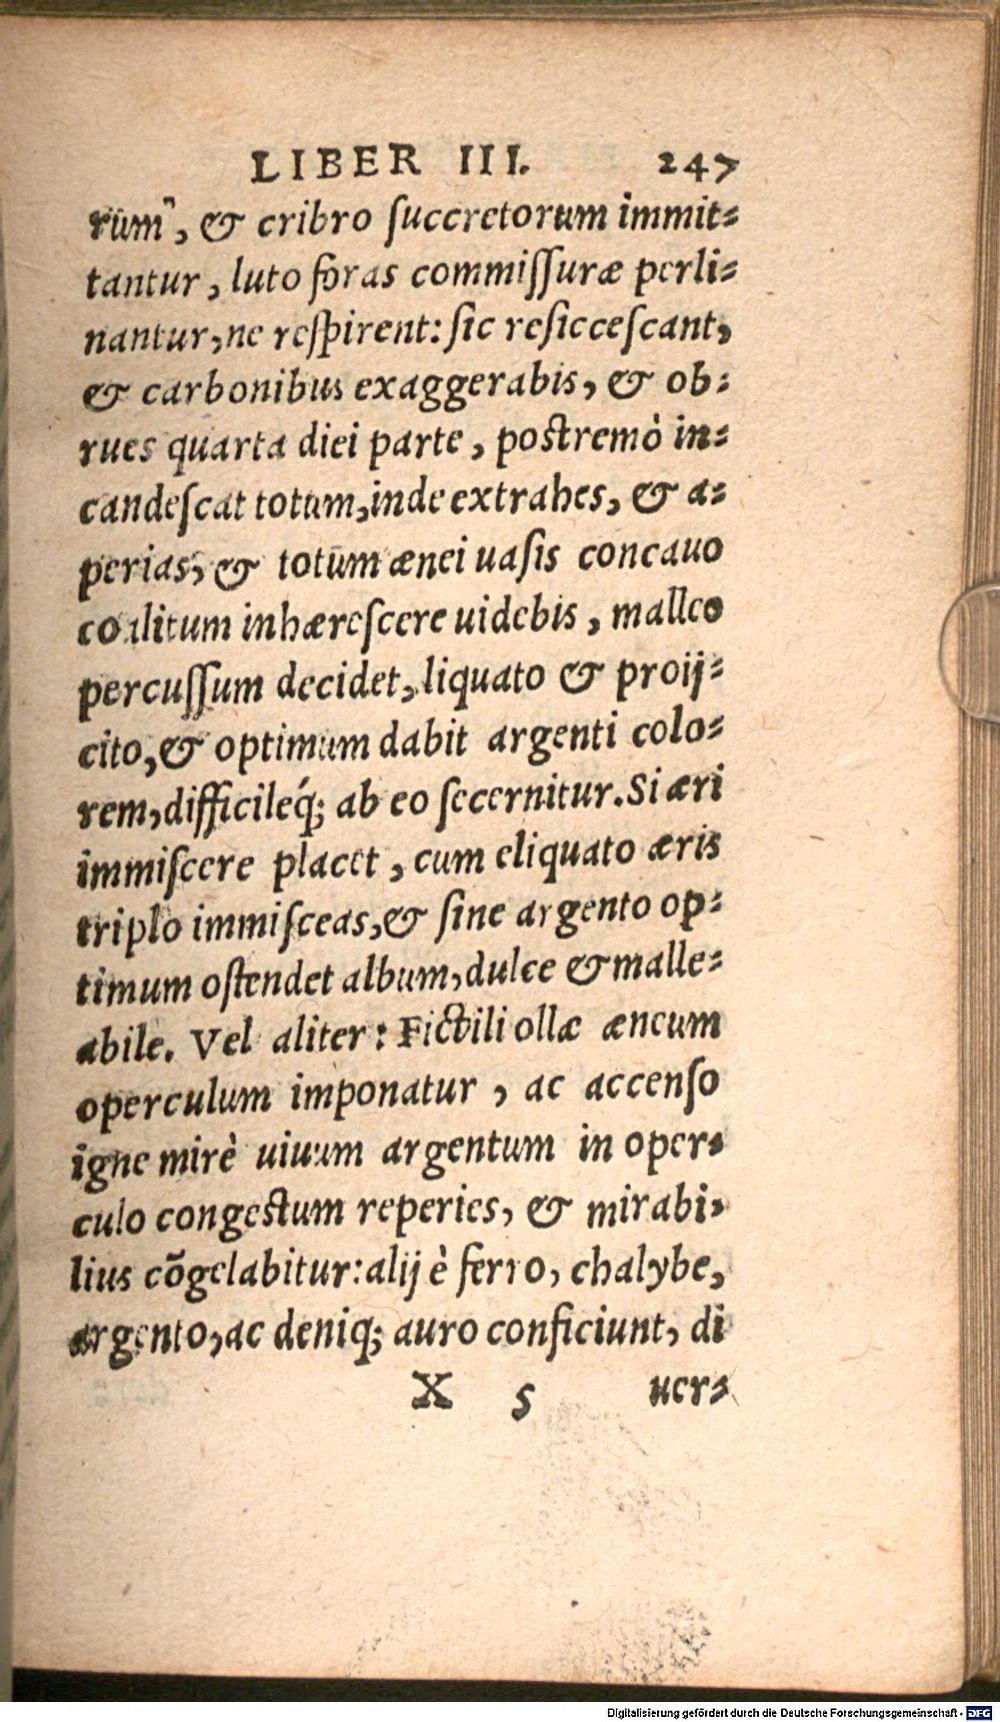 LIBER III. 247
rum, & cribro ſuccretorum immit-
tantur, luto foras commiſſuræ perli-
nantur, ne reſpirent: ſic reſiccefcant,
& carbonibus exaggerabis, & ob-
rues quarta diei parte, postremò in-
candeſcat totum, inde extrahes, & a-
perias, & totum ænei uaſis concauo
coalitum inhæreſcere uidebis, malleo
percuſſum decidet, liquato & proij-
cito, & optimum dabit argenti colo-
rem, difficileq́; ab eo ſecernitur. Si æri
immiſcere placet, cum eliquato æris
triplo immiſceas, & ſine argento op-
timum oſtendet album, dulce & malle-
abile. Vel aliter: Fictili ollæ æneum
operculum imponatur, ac accenſo
igne mirè uiuum argentum in oper-
culo congestum reperies, & mirabi-
lius cõgelabitur: alij è ferro, chalybe,
argento, ac deniq; auro conficiunt, di
X 5 uer-
Digitalisierung gefördert durch die Deutsche Forschungsgemeinschaft - DFG